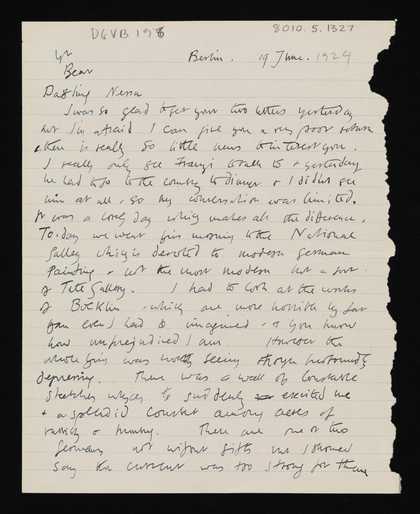 DGVB 198
8010.5.1327
Yr
Bear
Berlin. 19 June. 1924
Darling Nessa
I was so glad to get your two letters yesterday
but I'm afraid I can give you a very poor return
there is really so little news to interest you.
I really only see Franzi to talk to & yesterday
he had to go to the country to dinner & I didn't see
him at all, so my conversation was limited.
It was a lovely day which makes all the difference.
To-day we went this morning to the National
Gallery which is devoted to modern German
Painting & not the most modern but a sort
of Tate Gallery. I had to look at the works
of Böcklin which are more horrible by far
than even I had imagined & you know
how unprejudiced I am However the
whole thing was worth seeing though profoundly
depressing. There was a wall of Constable
sketches which to suddenly excited me
& a splendid Courbet among acres of
rubbish & mummy. There are one or two
Germans not without gifts but I should
say the current was too strong for them